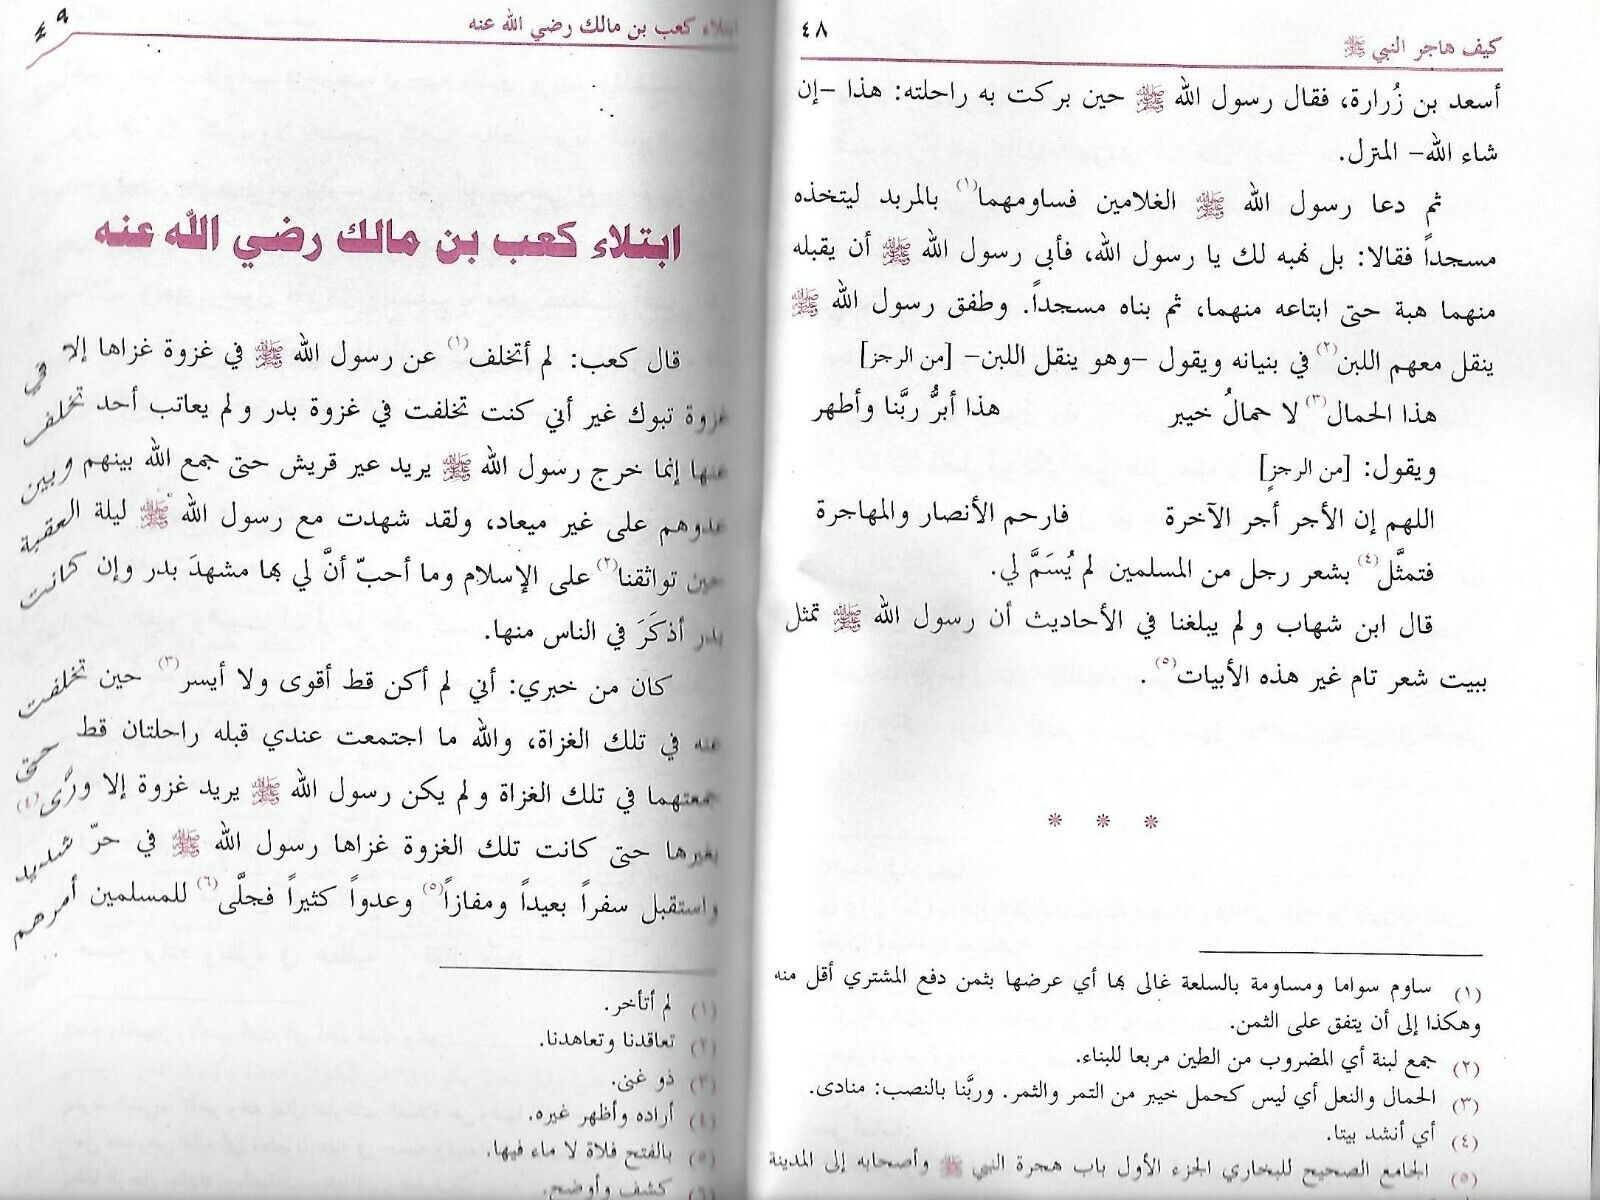 كيف هاجر النبي ﷺ
٤٨
أسعد بن زُرارة، فقال رسول الله ﷺ حين بركت به راحلته: هذا –إن
شاء الله– المنزل.
ثم دعا رسول الله ﷺ الغلامين فساومهما(١) بالمربد ليتخذه
مسجداً فقالا: بل نهبه لك يا رسول الله، فأبى رسول الله ﷺ أن يقبله
منهما هبة حتى ابتاعه منهما، ثم بناه مسجداً. وطفق رسول الله ﷺ
ينقل معهم اللبن(٢) في بنيانه ويقول –وهو ينقل اللبن– [من الرجز]
هذا الحمال(٣) لا حمالُ خيبر هذا أبرُّ ربَّنا وأطهر
ويقول: [من الرجز]
اللهم إن الأجر أجر الآخرة فارحم الأنصار والمهاجرة
فتمثَّل(٤) بشعر رجل من المسلمين لم يُسَمَّ لي.
قال ابن شهاب ولم يبلغنا في الأحاديث أن رسول الله ﷺ تمثل
ببيت شعر تام غير هذه الأبيات(٥).
* * *
(١) ساوم سواما ومساومة بالسلعة غالى بها أي عرضها بثمن دفع المشتري أقل منه
وهكذا إلى أن يتفق على الثمن.
(٢) جمع لبنة أي المضروب من الطين مربعا للبناء.
(٣) الحمال والنعل أي ليس كحمل خيبر من التمر والثمر. وربَّنا بالنصب: منادى.
(٤) أي أنشد بيتا.
(٥) الجامع الصحيح للبخاري الجزء الأول باب هجرة النبي ﷺ وأصحابه إلى المدينة
ابتلاء كعب بن مالك رضي الله عنه
٤٩
ابتلاء كعب بن مالك رضي الله عنه
قال كعب: لم أتخلف(١) عن رسول الله ﷺ في غزوة غزاها إلا في
غزوة تبوك غير أني كنت تخلفت في غزوة بدر ولم يعاتب أحد تخلف
عنها إنما خرج رسول الله ﷺ يريد عير قريش حتى جمع الله بينهم وبين
عدوهم على غير ميعاد، ولقد شهدت مع رسول الله ﷺ ليلة العقبة
حين تواثقنا(٢) على الإسلام وما أحبّ أنَّ لي بها مشهدَ بدر وإن كانت
بدر أذكَرَ في الناس منها.
كان من خبري: أني لم أكن قط أقوى ولا أيسر(٣) حين تخلفت
عنه في تلك الغزاة، والله ما اجتمعت عندي قبله راحلتان قط حتى
جمعتهما في تلك الغزاة ولم يكن رسول الله ﷺ يريد غزوة إلا ورَّى(٤)
بغيرها حتى كانت تلك الغزوة غزاها رسول الله ﷺ في حرّ شديد
واستقبل سفراً بعيداً ومفازاً(٥) وعدواً كثيراً فجلَّى(٦) للمسلمين أمرهم
(١) لم أتأخر.
(٢) تعاقدنا وتعاهدنا.
(٣) ذو غنى.
(٤) أراده وأظهر غيره.
(٥) بالفتح فلاة لا ماء فيها.
(٦) كشف وأوضح.